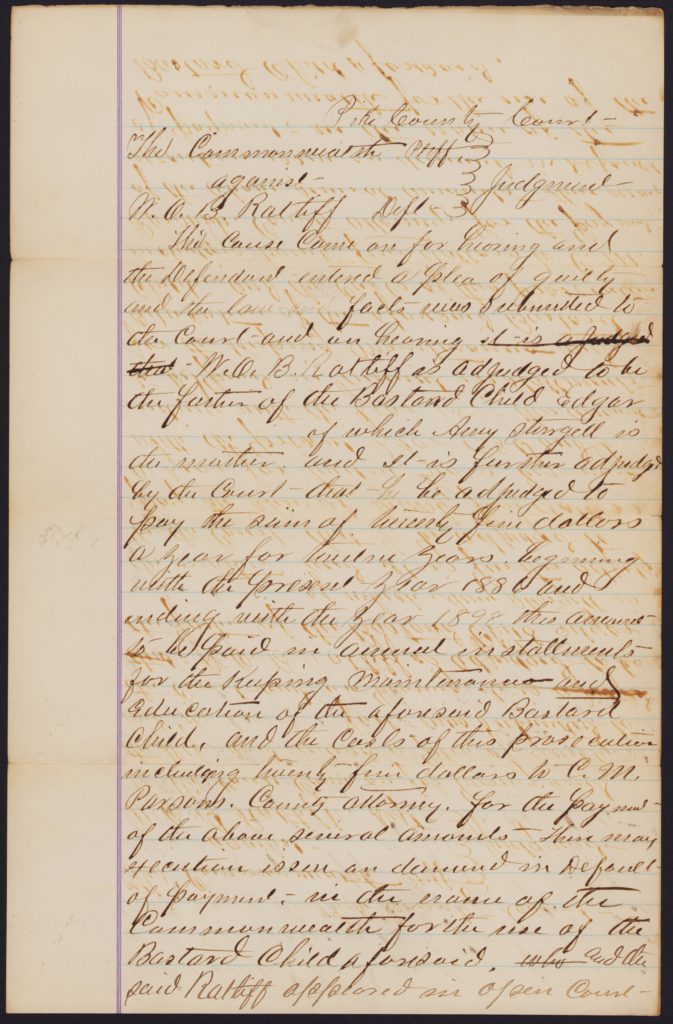 Pike County Court
The Commonwealth Ptff
against
Judgment
W. O. B. Ratliff Deft
This Cause Came on for hearing and
the Defendant entered a plea of guilty
and the law and facts was Submitted to
the Court and on hearing it is adjudged
that W. O. B. Ratliff is adjudged to be
the farther of the Bastard Child Edgar
of which Amy Sturgell is
the mother. and it is further adjudged
by the Court that he be adjudged to
pay the sum of twenty five dollars
a year for twelve years. begenning
with the present year 1886 and
ending with the year 1898 this amount
to be paid in annual installments
for the Keeping Maintenance and
Education of the aforesaid Bastard
Child, and the Costs of this prosecution
including twenty five dollars to C. M.
Parsons. County attorney. for the payment
of the above several amounts there may
execution issue on demand in Default
of payment, in the name of the
Commonwealth for the use of the
Bastard Child aforesaid, who And the
said Ratliff appeared in open Court